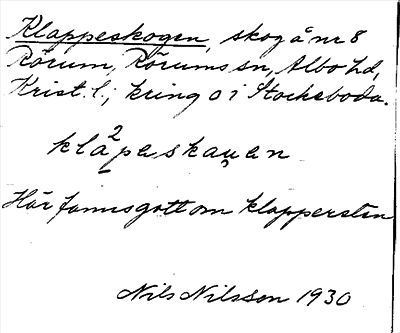 Klappeskogen, skog å nr 8
Rörum, Rörums sn, Albo hd,
Krist. l.; kring o i Stockeboda.
kla²peskau̯en
Här finns gott om klappersten
Nils Nilsson 1930